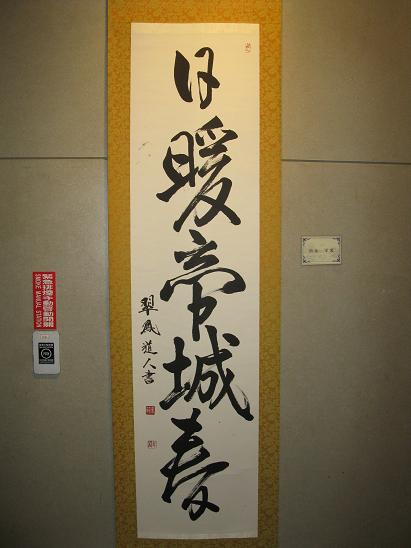 日暖帝城春
翠鳳道人書
緊急排煙手動啟動開關
SMOKE MANUAL STATION